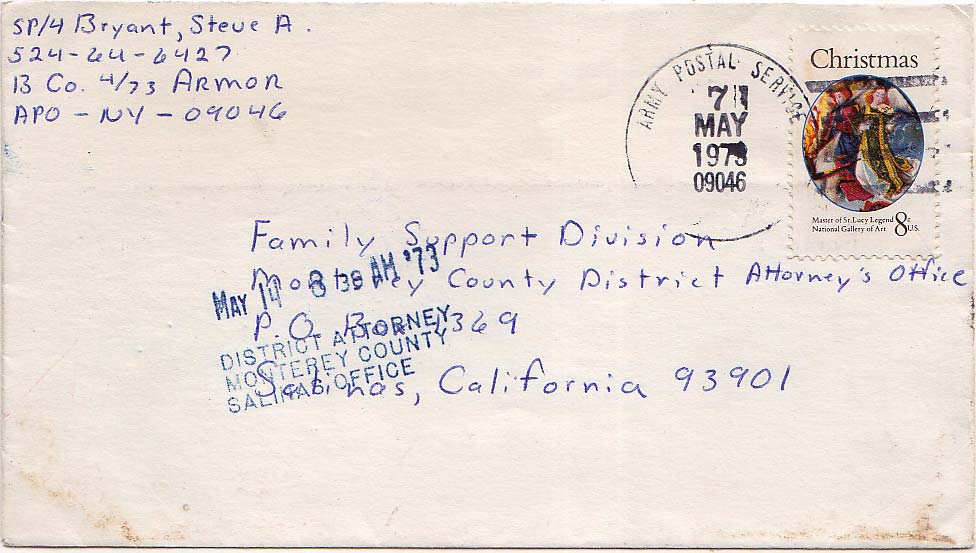 SP/4 Bryant, Steve A.
524-64-6427
B Co. 4/73 ARMOR
APO - NY - 09046
ARMY POSTAL SERVICE
MAY
1973
09046
Christmas
Master of St. Lucy Legend
National Gallery of Art
8c U.S.
Family Support Division
Monterey County District Attorney's Office
P.O. Box
Salinas, California 93901
MAY 14 8 38 AM '73
DISTRICT ATTORNEY
MONTEREY COUNTY
SALINAS OFFICE